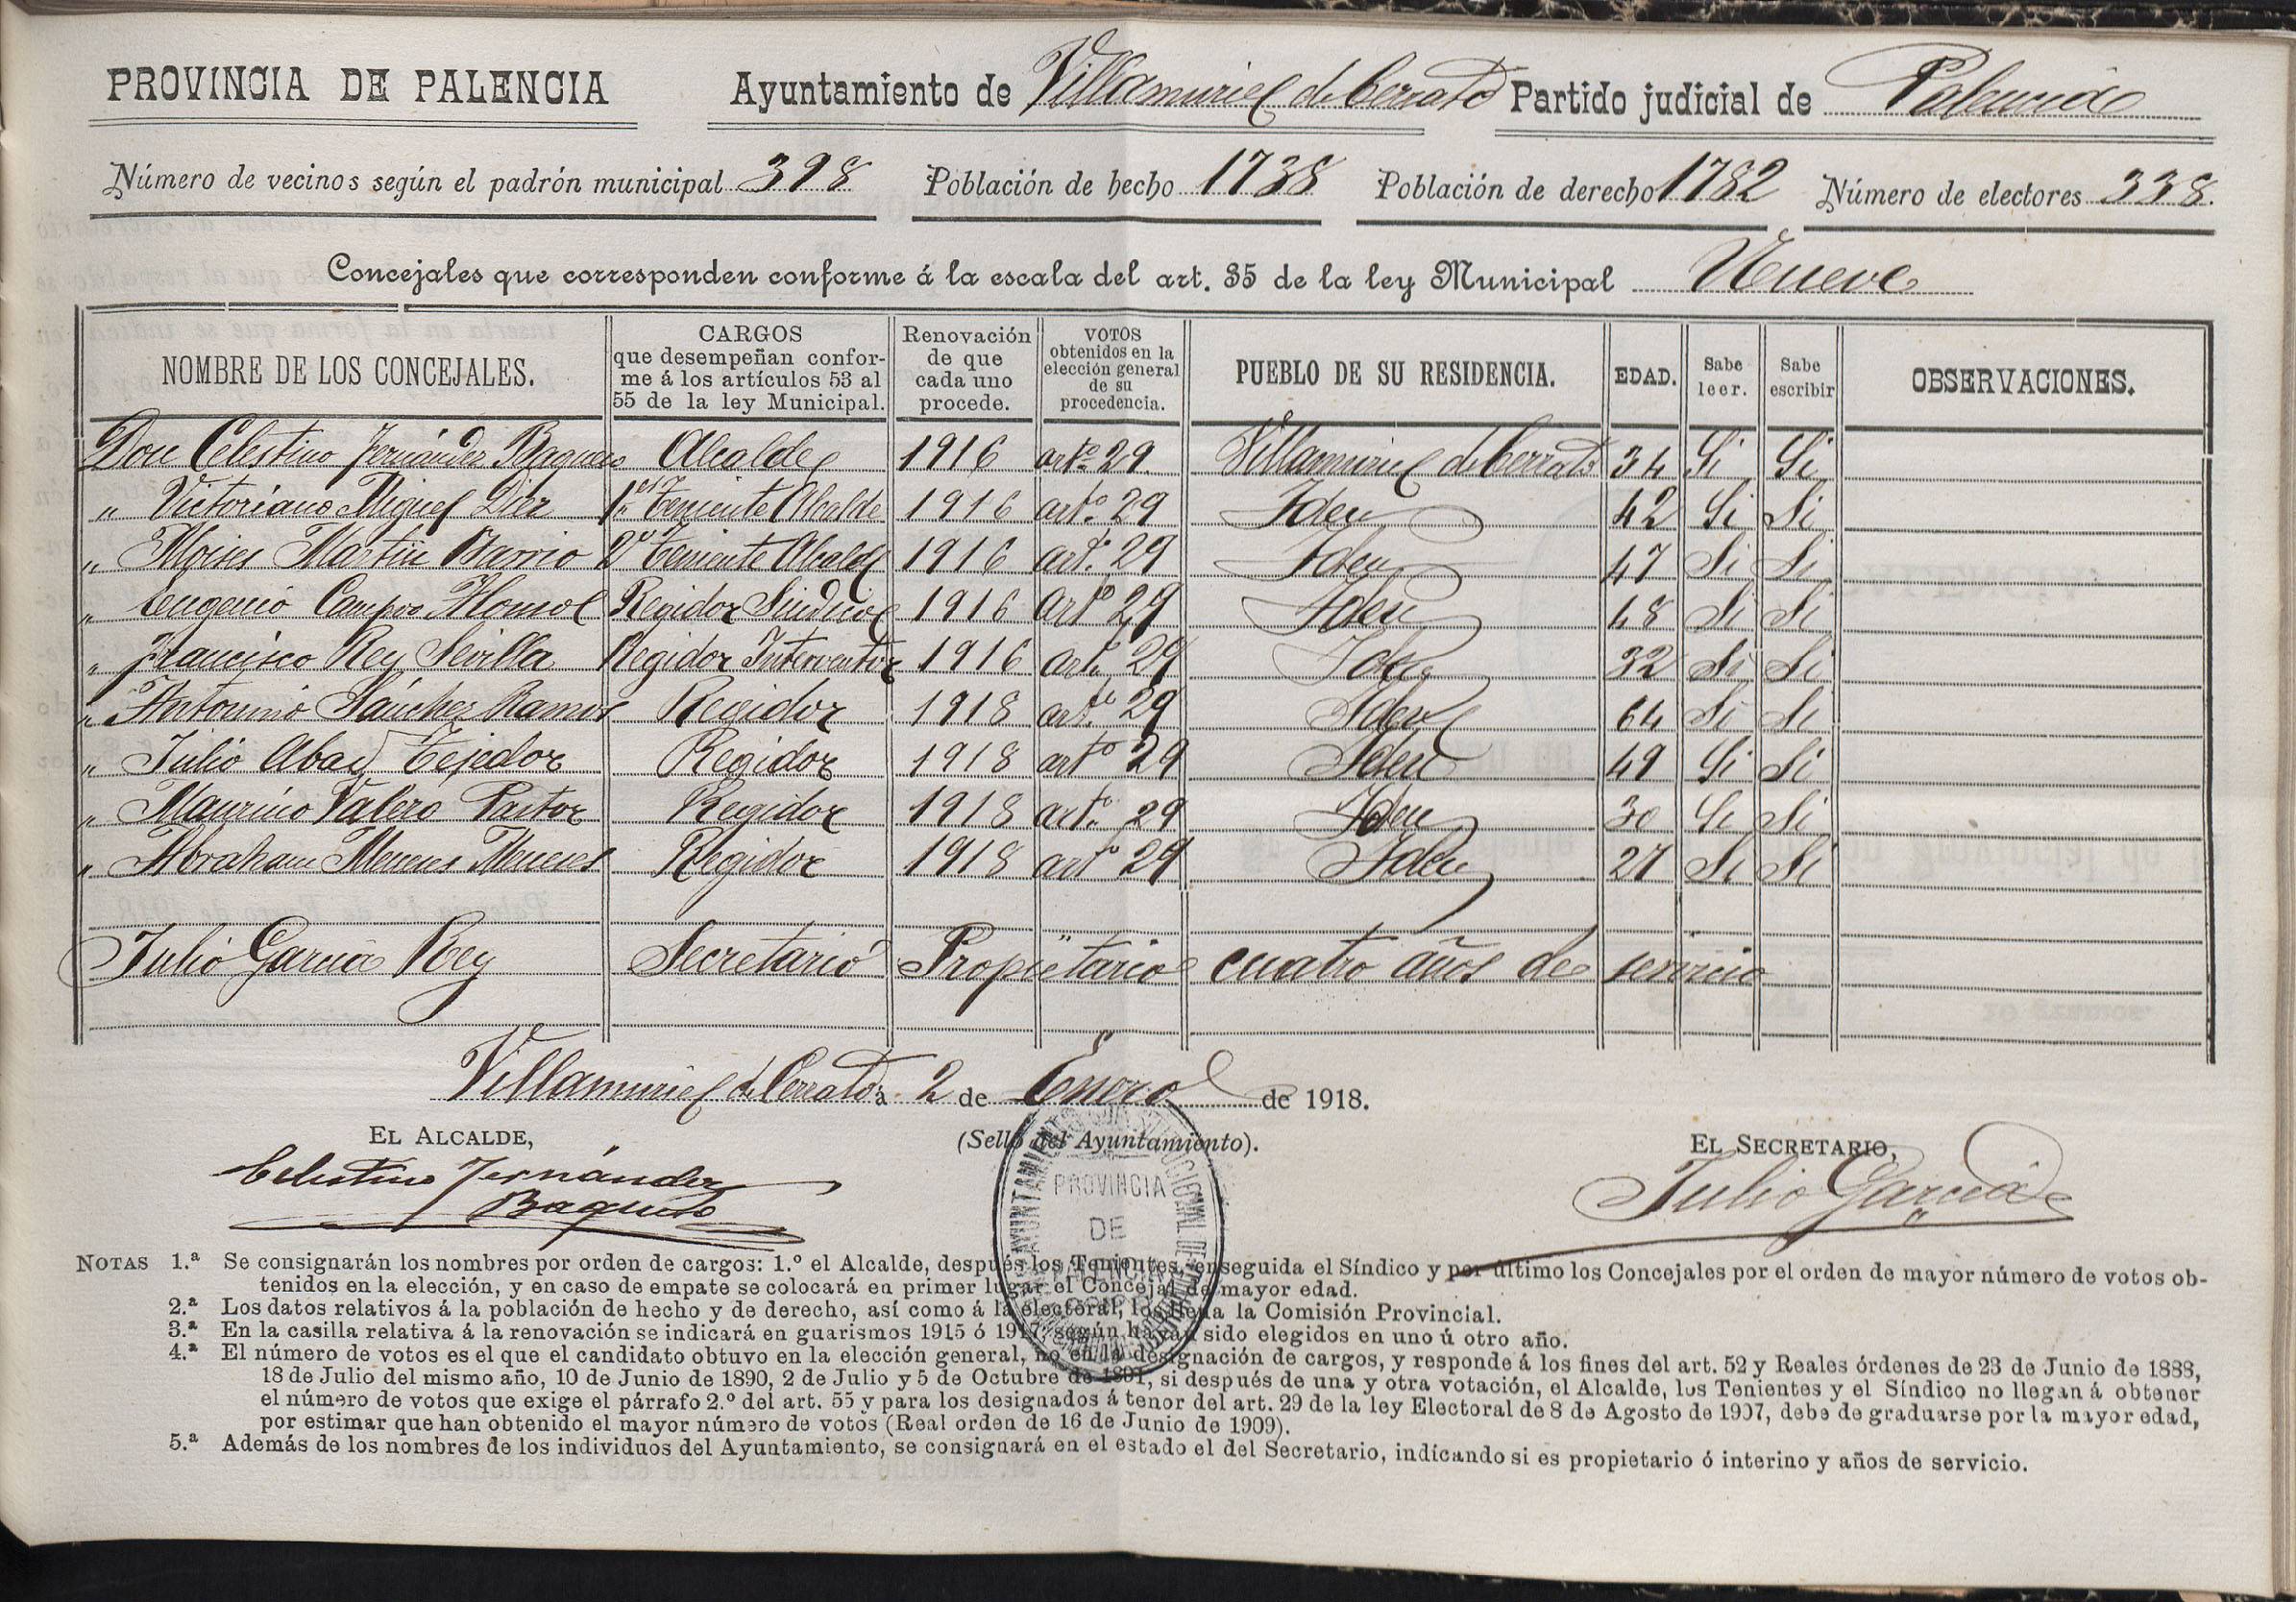 PROVINCIA DE PALENCIA Ayuntamiento de Villamuriel de Cerrato Partido judicial de Palencia
Número de vecinos según el padrón municipal 398 Población de hecho 1738 Población de derecho 1782 Número de electores 338.
Concejales que corresponden conforme á la escala del art. 35 de la ley Municipal Nueve
NOMBRE DE LOS CONCEJALES. CARGOS que desempeñan confor- Renovación VOTOS PUEBLO DE SU RESIDENCIA. EDAD. Sabe Sabe OBSERVACIONES.
me á los artículos 53 al de que obtenidos en la leer. escribir
55 de la ley Municipal. cada uno elección general
procede. de su
procedencia.
Don Celestino Fernández Baquero Alcalde 1916 arto. 29 Villamuriel de Cerrato 34 Si Si
" Victoriano Miguel Diez 1er Teniente Alcalde 1916 arto. 29 Idem 42 Si Si
" Moises Martín Barrio 2o Teniente Alcalde 1916 arto. 29 Idem 47 Si Si
" Eugenio Campo Monsol Regidor Sindico 1916 arto 29 Idem 48 Si Si
" Francisco Rey Sevilla Regidor Interventor 1916 arto. 29 Idem 32 Si Si
" Antonino Sánchez Ramos Regidor 1918 arto. 29 Idem 64 Si Si
" Julio Abad Tejedor Regidor 1918 arto 29 Idem 49 Si Si
" Maurino Valero Pastor Regidor 1918 arto. 29 Idem 30 Si Si
" Abraham Meneses Meneses Regidor 1918 arto 29 Idem 27 Si Si
Julio García Rey Secretario Propietario cuatro años de servicio
Villamuriel de Cerrato á 2 de Enero de 1918.
EL ALCALDE, (Sello del Ayuntamiento). EL SECRETARIO,
Celestino Fernández Baquero Julio García
AYUNTAMIENTO CONSTITUCIONAL DE
PROVINCIA
DE
PALENCIA
NOTAS 1.ª Se consignarán los nombres por orden de cargos: 1.º el Alcalde, después los Tenientes, enseguida el Síndico y por último los Concejales por el orden de mayor número de votos ob-
tenidos en la elección, y en caso de empate se colocará en primer lugar el Concejal de mayor edad.
2.ª Los datos relativos á la población de hecho y de derecho, así como á la electoral, los llena la Comisión Provincial.
3.ª En la casilla relativa á la renovación se indicará en guarismos 1915 ó 1917, según hayan sido elegidos en uno ú otro año.
4.ª El número de votos es el que el candidato obtuvo en la elección general, no en la designación de cargos, y responde á los fines del art. 52 y Reales órdenes de 23 de Junio de 1888,
18 de Julio del mismo año, 10 de Junio de 1890, 2 de Julio y 5 de Octubre de 1891, si después de una y otra votación, el Alcalde, los Tenientes y el Síndico no llegan á obtener
el número de votos que exige el párrafo 2.º del art. 55 y para los designados á tenor del art. 29 de la ley Electoral de 8 de Agosto de 1907, debe de graduarse por la mayor edad,
por estimar que han obtenido el mayor número de votos (Real orden de 16 de Junio de 1909).
5.ª Además de los nombres de los individuos del Ayuntamiento, se consignará en el estado el del Secretario, indicando si es propietario ó interino y años de servicio.